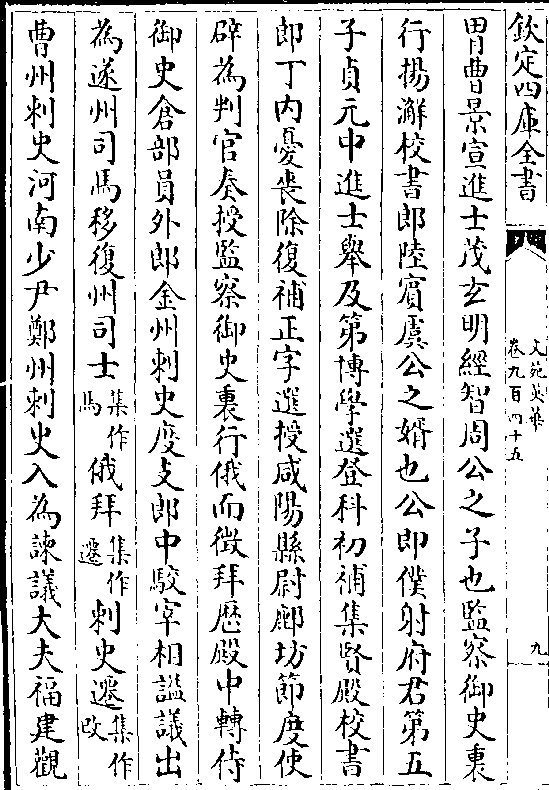 欽定四庫全書
文苑英華
卷九百四十五
九
胄曹景宣進士茂玄明經智周公之子也監察御史裏
行揚澥校書郎陸賔虞公之婿也公即僕射府君第五
子貞元中進士舉及第博學選登科初補集賢殿校書
郎丁内憂喪除復補正字選授咸陽縣尉鄜坊節度使
辟為判官奏授監察御史裏行俄而徴拜歴殿中轉侍
御史倉部員外郎金州刺史度支郎中駮宰相謚議出
為遂州司馬移復州司士集作馬俄拜集作遷刺史遷集作改
曹州刺史河南少尹鄭州刺史入為諫議大夫福建觀